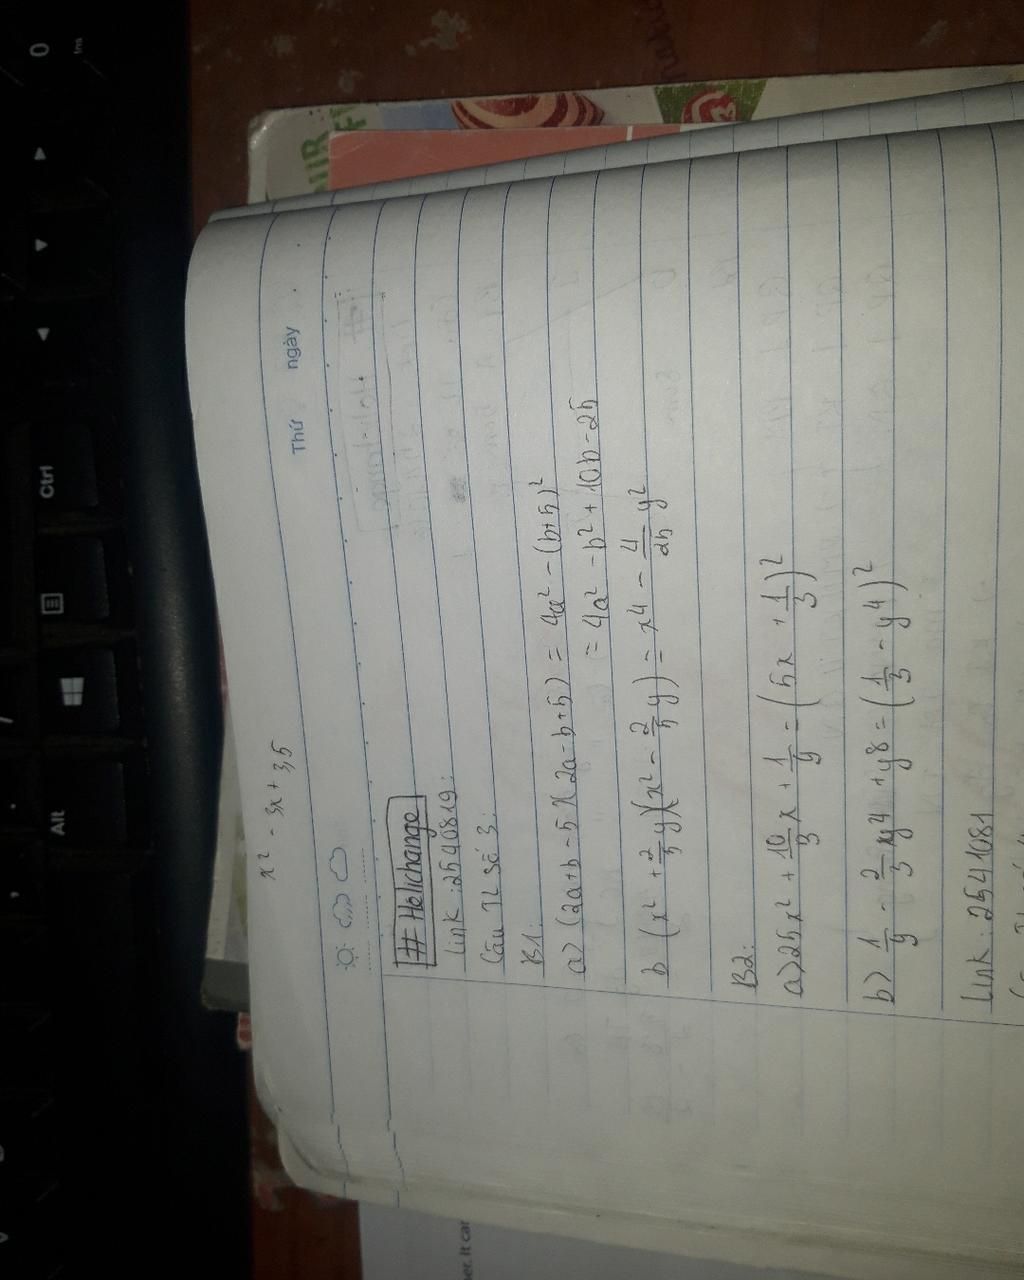 x² - 3x + 3,5
Thứ ngày
# Holichange
link : 2540819:
Câu TL số 3:
B1:
a) (2a+b-5)(2a-b+5) = 4a² - (b+5)²
= 4a² - b² + 10b - 25
b (x² + 2/5 y)(x² - 2/5 y) = x4 - 4/25 y²
B2:
a) 25x² + 10/3 x + 1/9 = (5x + 1/3)²
b) 1/9 - 2/3 xy4 + y8 = (1/3 - y4)²
link : 2541081
Alt
Ctrl
0
Ins